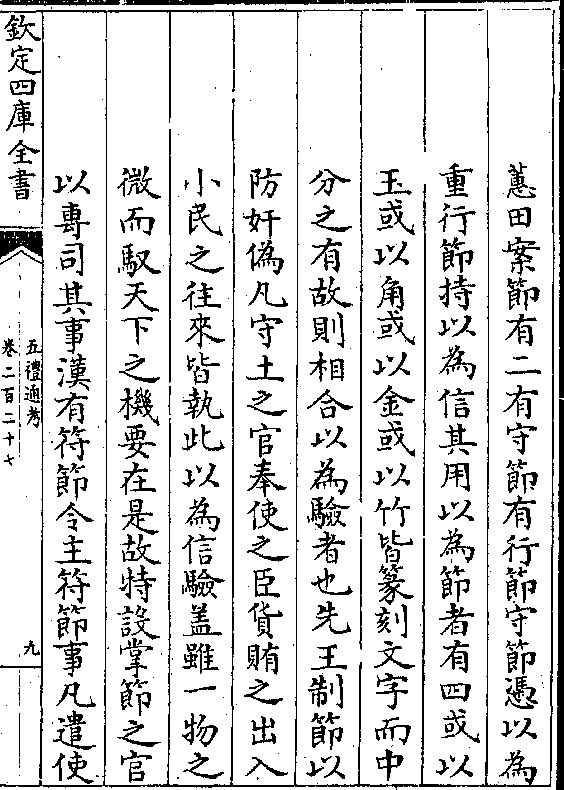 蕙田案節有二有守節有行節守節憑以為
重行節持以為信其用以為節者有四或以
玉或以角或以金或以竹皆篆刻文字而中
分之有故則相合以為驗者也先王制節以
防奸偽凡守土之官奉使之臣貨賄之出入
小民之往來皆執此以為信驗盖雖一物之
微而馭天下之機要在是故特設掌節之官
以專司其事漢有符節令主符節事凡遣使
欽定四庫全書
五禮通考
卷二百二十七
九